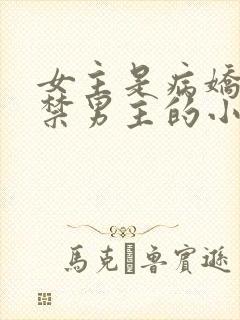 女主是病嬌
禁男主的小
馬克 魯賓遜